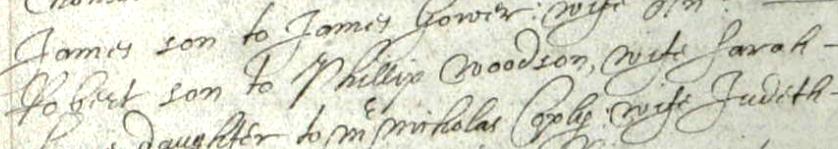 James son to James Gower: wife
Robert son to Phillip Woodson, wife Sarah -
daughter to Mr Nicholas Coply: wife Judeth -